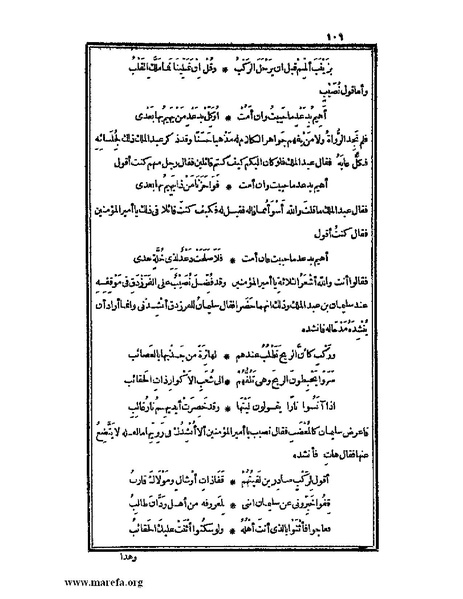 ١٠٩
بزينب ألمم قبل ان يرحل الركب * وقل ان تملينا فما ملك القلب
وأما قول نُصَيْب
أهيم بدعد ما حييت وان أمت * أوكل بدعد من يهيم بها بعدى
فلم تجد الرواة ولا من يفهم جواهر الكلام له مذهبا حسنا وقد ذكر عبد الملك ذلك لجلسائه
فكل عابه فقال عبد الملك فلو كان اليكم كيف كنتم قائلين فقال رجل منهم كنت أقول
أهيم بدعد ما حييت وان أمت * فواحزنا من ذا يهيم بها بعدى
فقال عبد الملك ما قلت والله أسوأ مما قاله فقيل له فكيف كنت قائلا فى ذلك يا أمير المؤمنين
فقال كنت أقول
أهيم بدعد ما حييت وان أمت * فلا صلحت دعد لذى خلة بعدى
فقالوا أنت والله أشعر الثلاثة يا أمير المؤمنين وقد فضل نصيب على الفرزدق فى موقفه
عند سليمان بن عبد الملك وذلك انهما حضرا فقال سليمان للفرزدق أنشدنى وانما أراد أن
ينشده مدحا له فانشده
وركب كأن الريح تطلب عندهم * لها ترة من جذبها بالعصائب
سروا يخبطون الريح وهى تلفهم * الى شعب الاكوار ذات الحقائب
اذا آنسوا نارا يقولون ليتها * وقد خصرت أيديهم نار غالب
فاعرض سليمان كالمغضب فقال نصيب يا أمير المؤمنين ألا أنشدك فى رويها ما لعله لا يتضع
عنها فقال هات فأنشده
أقول لركب صادرين لقيتهم * قفا ذات أوشال ومولاك قارب
قفوا خبرونى عن سليمان اننى * لمعروفه من أهل ودان طالب
فعاجوا فأثنوا بالذى أنت أهله * ولو سكتوا أثنت عليك الحقائب
وهذا
www.marefa.org